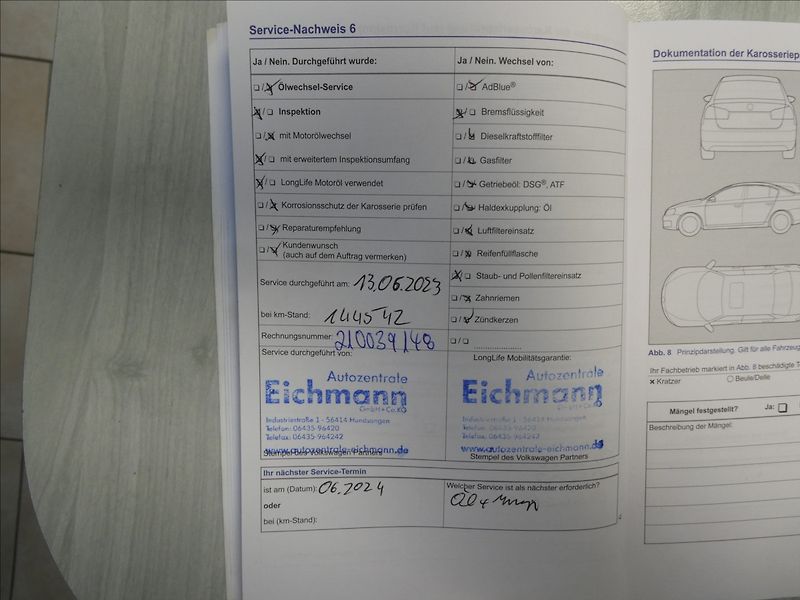 Service-Nachweis 6
Ja / Nein. Durchgeführt wurde:
Ja / Nein. Wechsel von:
Ölwechsel-Service
Inspektion
mit Motorölwechsel
mit erweitertem Inspektionsumfang
LongLife Motoröl verwendet
Korrosionsschutz der Karosserie prüfen
Reparaturempfehlung
Kundenwunsch
(auch auf dem Auftrag vermerken)
AdBlue®
Bremsflüssigkeit
Dieselkraftstofffilter
Gasfilter
Getriebeöl: DSG®, ATF
Haldexkupplung: Öl
Luftfiltereinsatz
Reifenfüllflasche
Staub- und Pollenfiltereinsatz
Zahnriemen
Zündkerzen
Service durchgeführt am: 13.06.2023
bei km-Stand: 144542
Rechnungsnummer: 210039148
Service durchgeführt von:
Autozentrale
Eichmann
GmbH+Co.KG
Industriestraße 1 - 56414 Hundsangen
Telefon: 06435-96420
Telefax: 06435-964242
www.autozentrale-eichmann.de
Stempel des Volkswagen Partners
LongLife Mobilitätsgarantie:
Autozentrale
Eichmann
GmbH+Co.KG
Industriestraße 1 - 56414 Hundsangen
Telefon: 06435-96420
Telefax: 06435-964242
www.autozentrale-eichmann.de
Stempel des Volkswagen Partners
Ihr nächster Service-Termin
ist am (Datum): 06.2024
oder
bei (km-Stand):
Welcher Service ist als nächster erforderlich?
Dokumentation der Karosseriep
Abb. 8 Prinzipdarstellung. Gilt für alle Fahrzeug
Ihr Fachbetrieb markiert in Abb. 8 beschädigte T
Kratzer
Beule/Delle
Mängel festgestellt? Ja:
Beschreibung der Mängel: